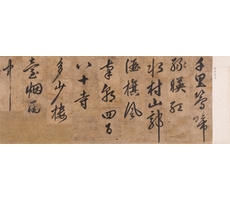 千里鶯啼
綠暎紅
水村山郭
酒旗風
南朝四百
八十寺
多少樓
臺烟雨
中